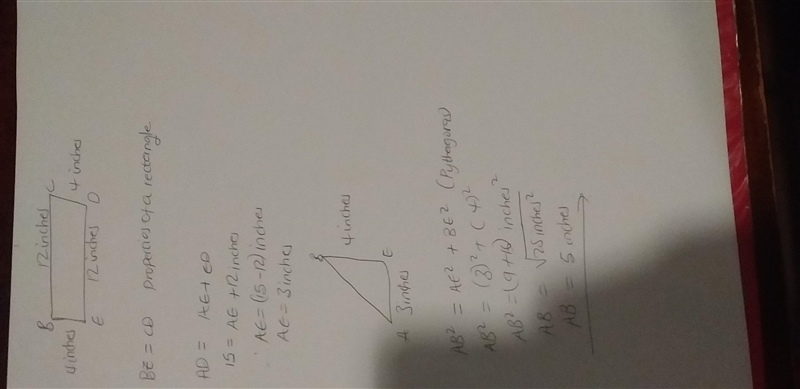 B 12 inches C
4 inches 4 inches
E 12 inches D
BE = CD Properties of a rectangle
AD = AE + ED
15 = AE + 12 inches
AE = (15 - 12) inches
AE = 3 inches
B
4 inches
A 3 inches E
AB² = AE² + BE² (Pythagoras)
AB² = (3)² + (4)²
AB² = (9 + 16) inches²
AB = √25 inches²
AB = 5 inches